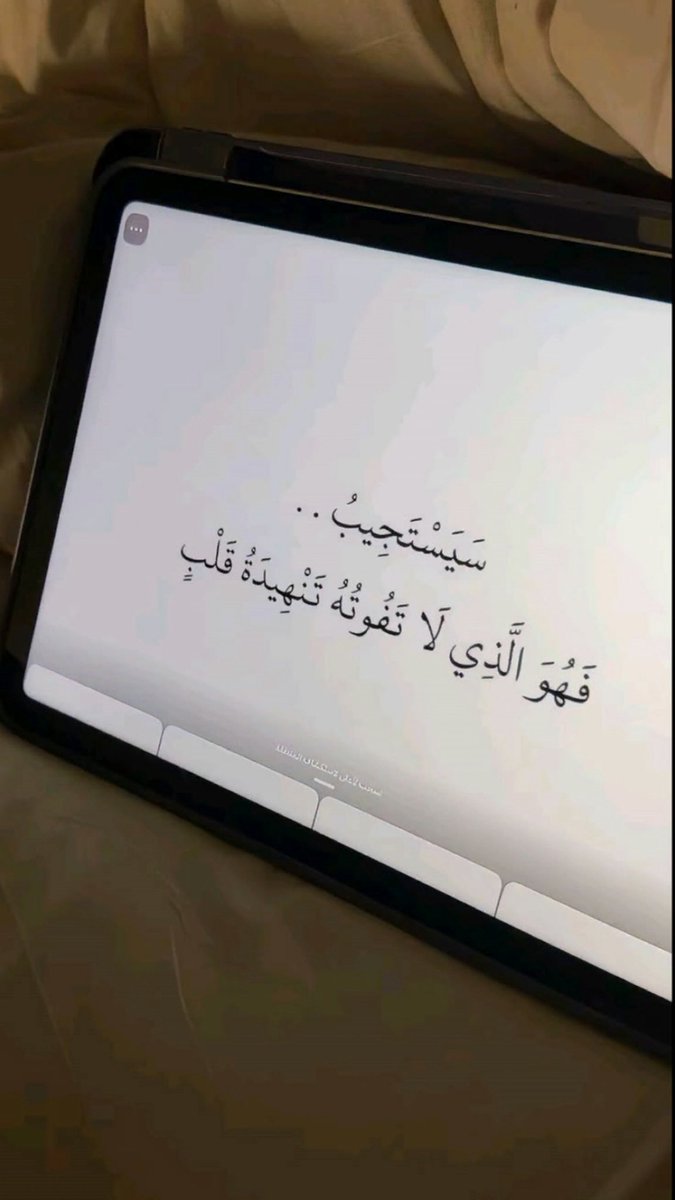 سَيَسْتَجِيبُ ..
فَهُوَ الَّذِي لَا تَفُوتُهُ تَنْهِيدَةُ قَلْبٍ